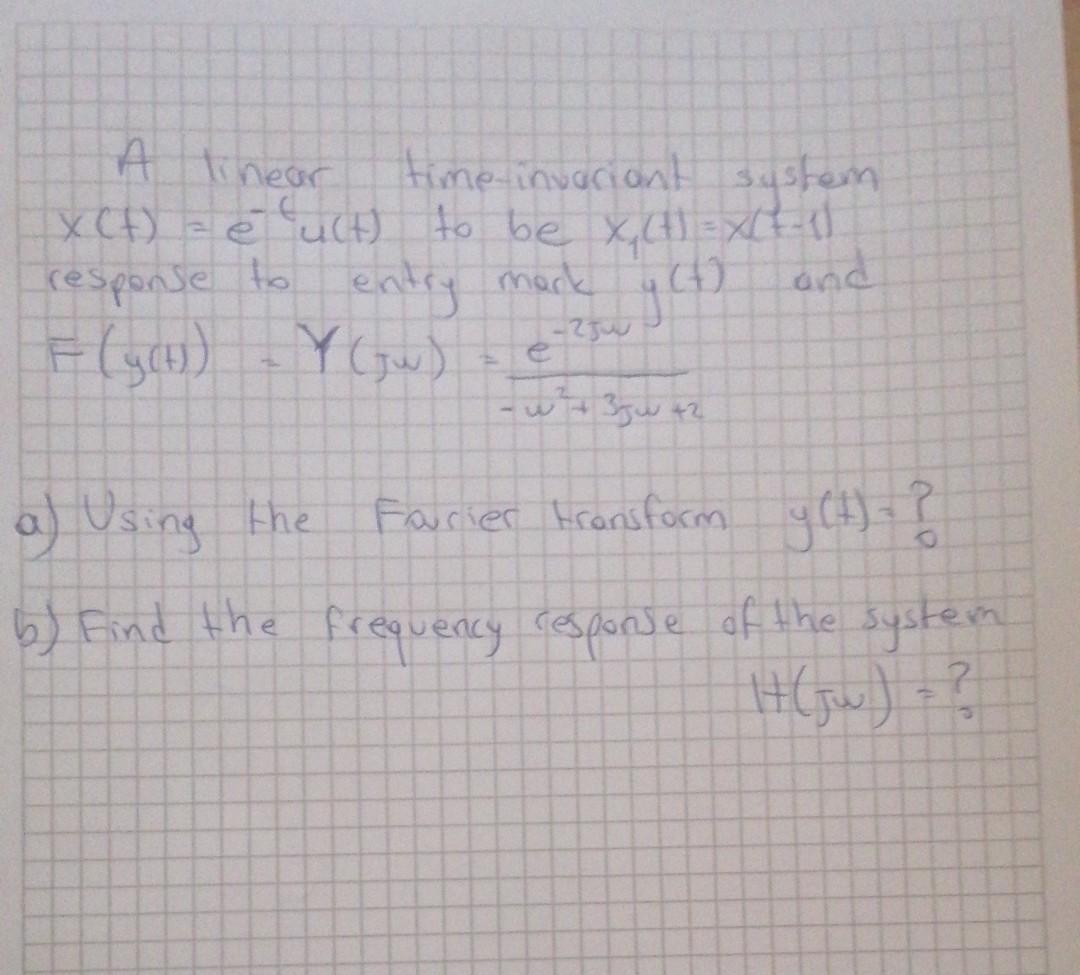 A linear time-invariant system
x(t) = e^-t u(t) to be x₁(t) = x(t-1)
response to entry mark y(t) and
F(y(t)) = Y(jw) = e^-2jw / -w² + 3jw + 2
a) Using the Fourier transform y(t) = ?
b) Find the frequency response of the system
H(jw) = ?